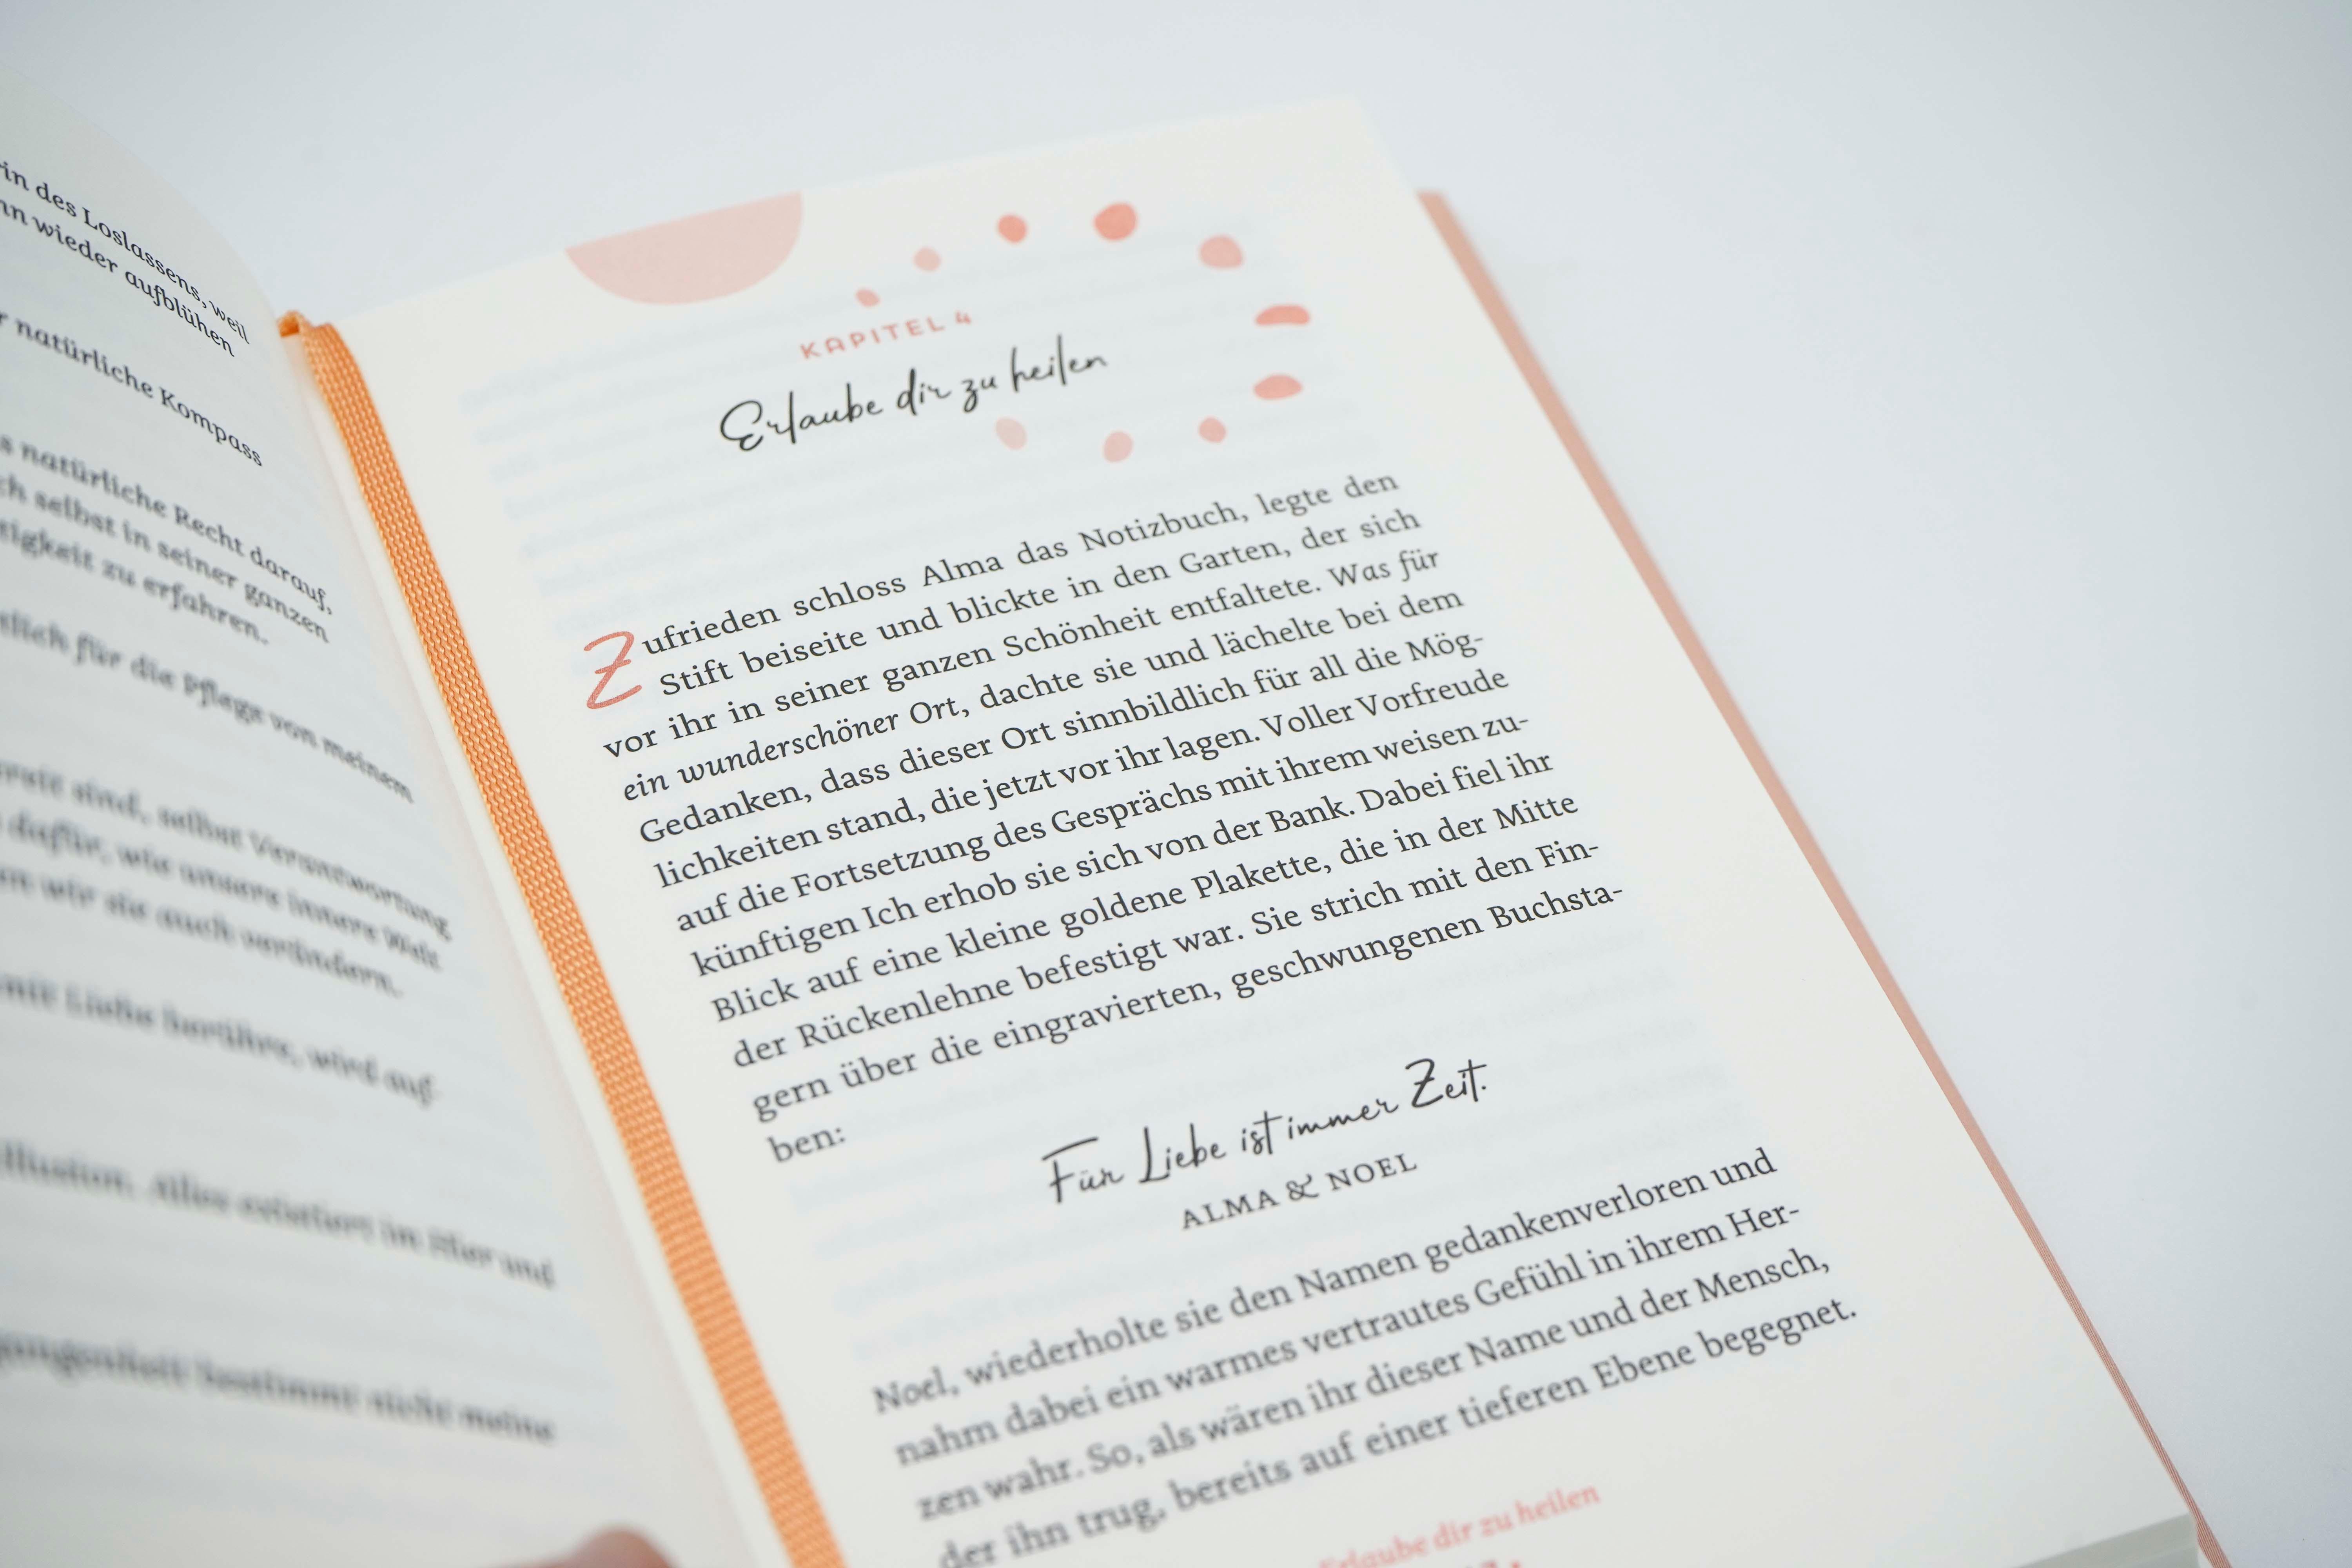 in des Loslassens, weil
wieder aufblühen
natürliche Kompass
natürliche Recht darauf,
selbst in seiner ganzen
zu erfahren.
für die Pflege von meinem
sind, selbst Verantwortung
dafür, wie unsere innere Welt
wir sie auch verändern.
mit Liebe berühre, wird auf-
Illusion. Alles existiert im Hier und
bestimmt nicht meine
KAPITEL 4
Erlaube dir zu heilen
Zufrieden schloss Alma das Notizbuch, legte den
Stift beiseite und blickte in den Garten, der sich
vor ihr in seiner ganzen Schönheit entfaltete. Was für
ein wunderschöner Ort, dachte sie und lächelte bei dem
Gedanken, dass dieser Ort sinnbildlich für all die Mög-
lichkeiten stand, die jetzt vor ihr lagen. Voller Vorfreude
auf die Fortsetzung des Gesprächs mit ihrem weisen zu-
künftigen Ich erhob sie sich von der Bank. Dabei fiel ihr
Blick auf eine kleine goldene Plakette, die in der Mitte
der Rückenlehne befestigt war. Sie strich mit den Fin-
gern über die eingravierten, geschwungenen Buchsta-
ben:
Für Liebe ist immer Zeit.
ALMA & NOEL
Noel, wiederholte sie den Namen gedankenverloren und
nahm dabei ein warmes vertrautes Gefühl in ihrem Her-
zen wahr. So, als wären ihr dieser Name und der Mensch,
der ihn trug, bereits auf einer tieferen Ebene begegnet.
Erlaube dir zu heilen